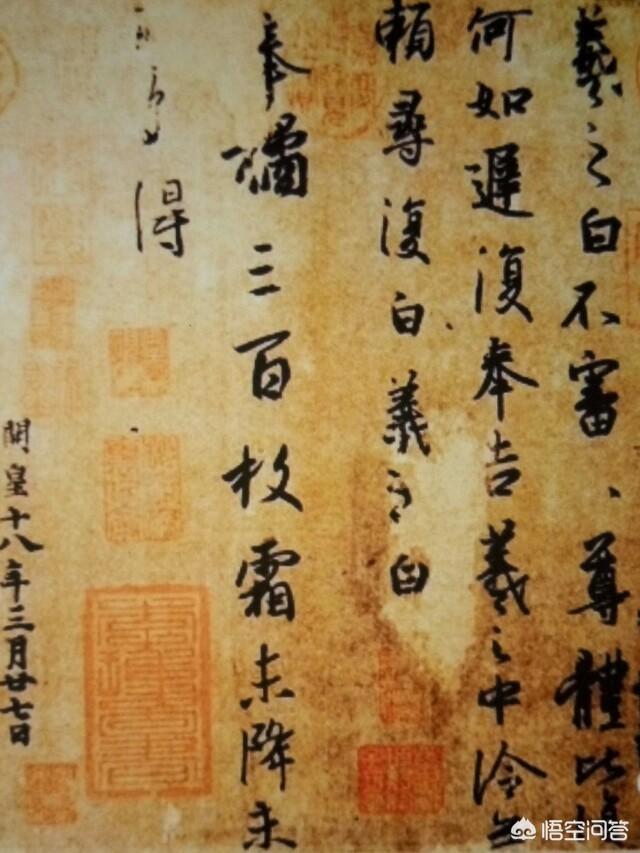 羲之白不審、尊體比復
何如遲復奉告羲之中冷無
賴尋復白羲之白
奉橘三百枚霜未降未
多得
開皇十八年三月廿七日
悟空问答